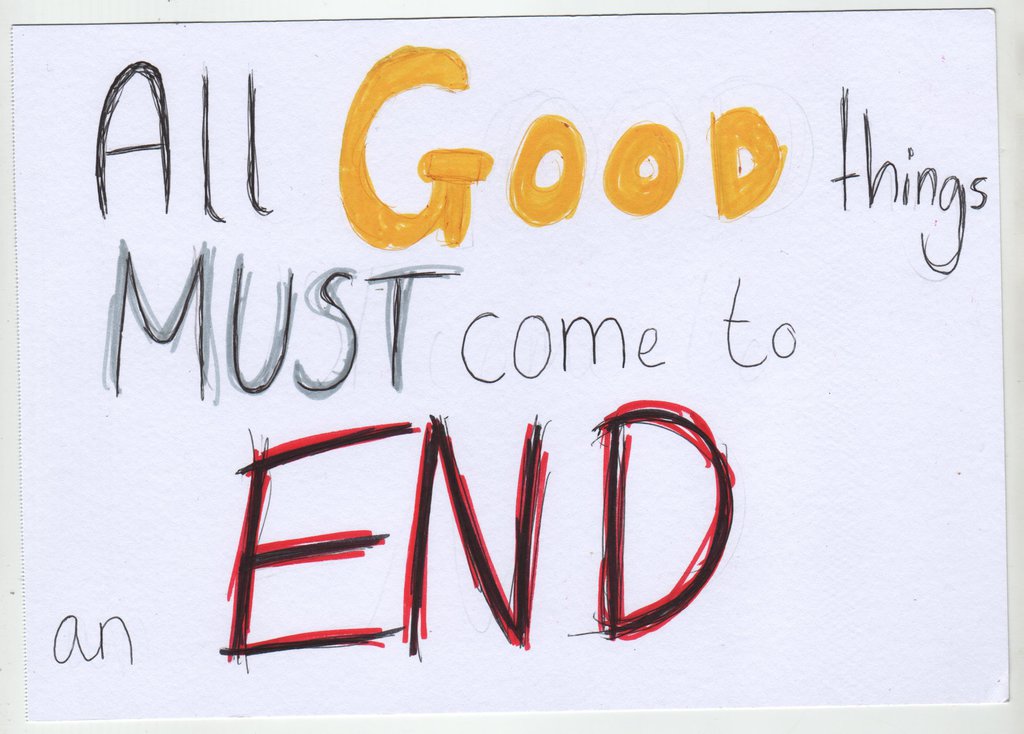 All GOOD things
MUST come to
an END